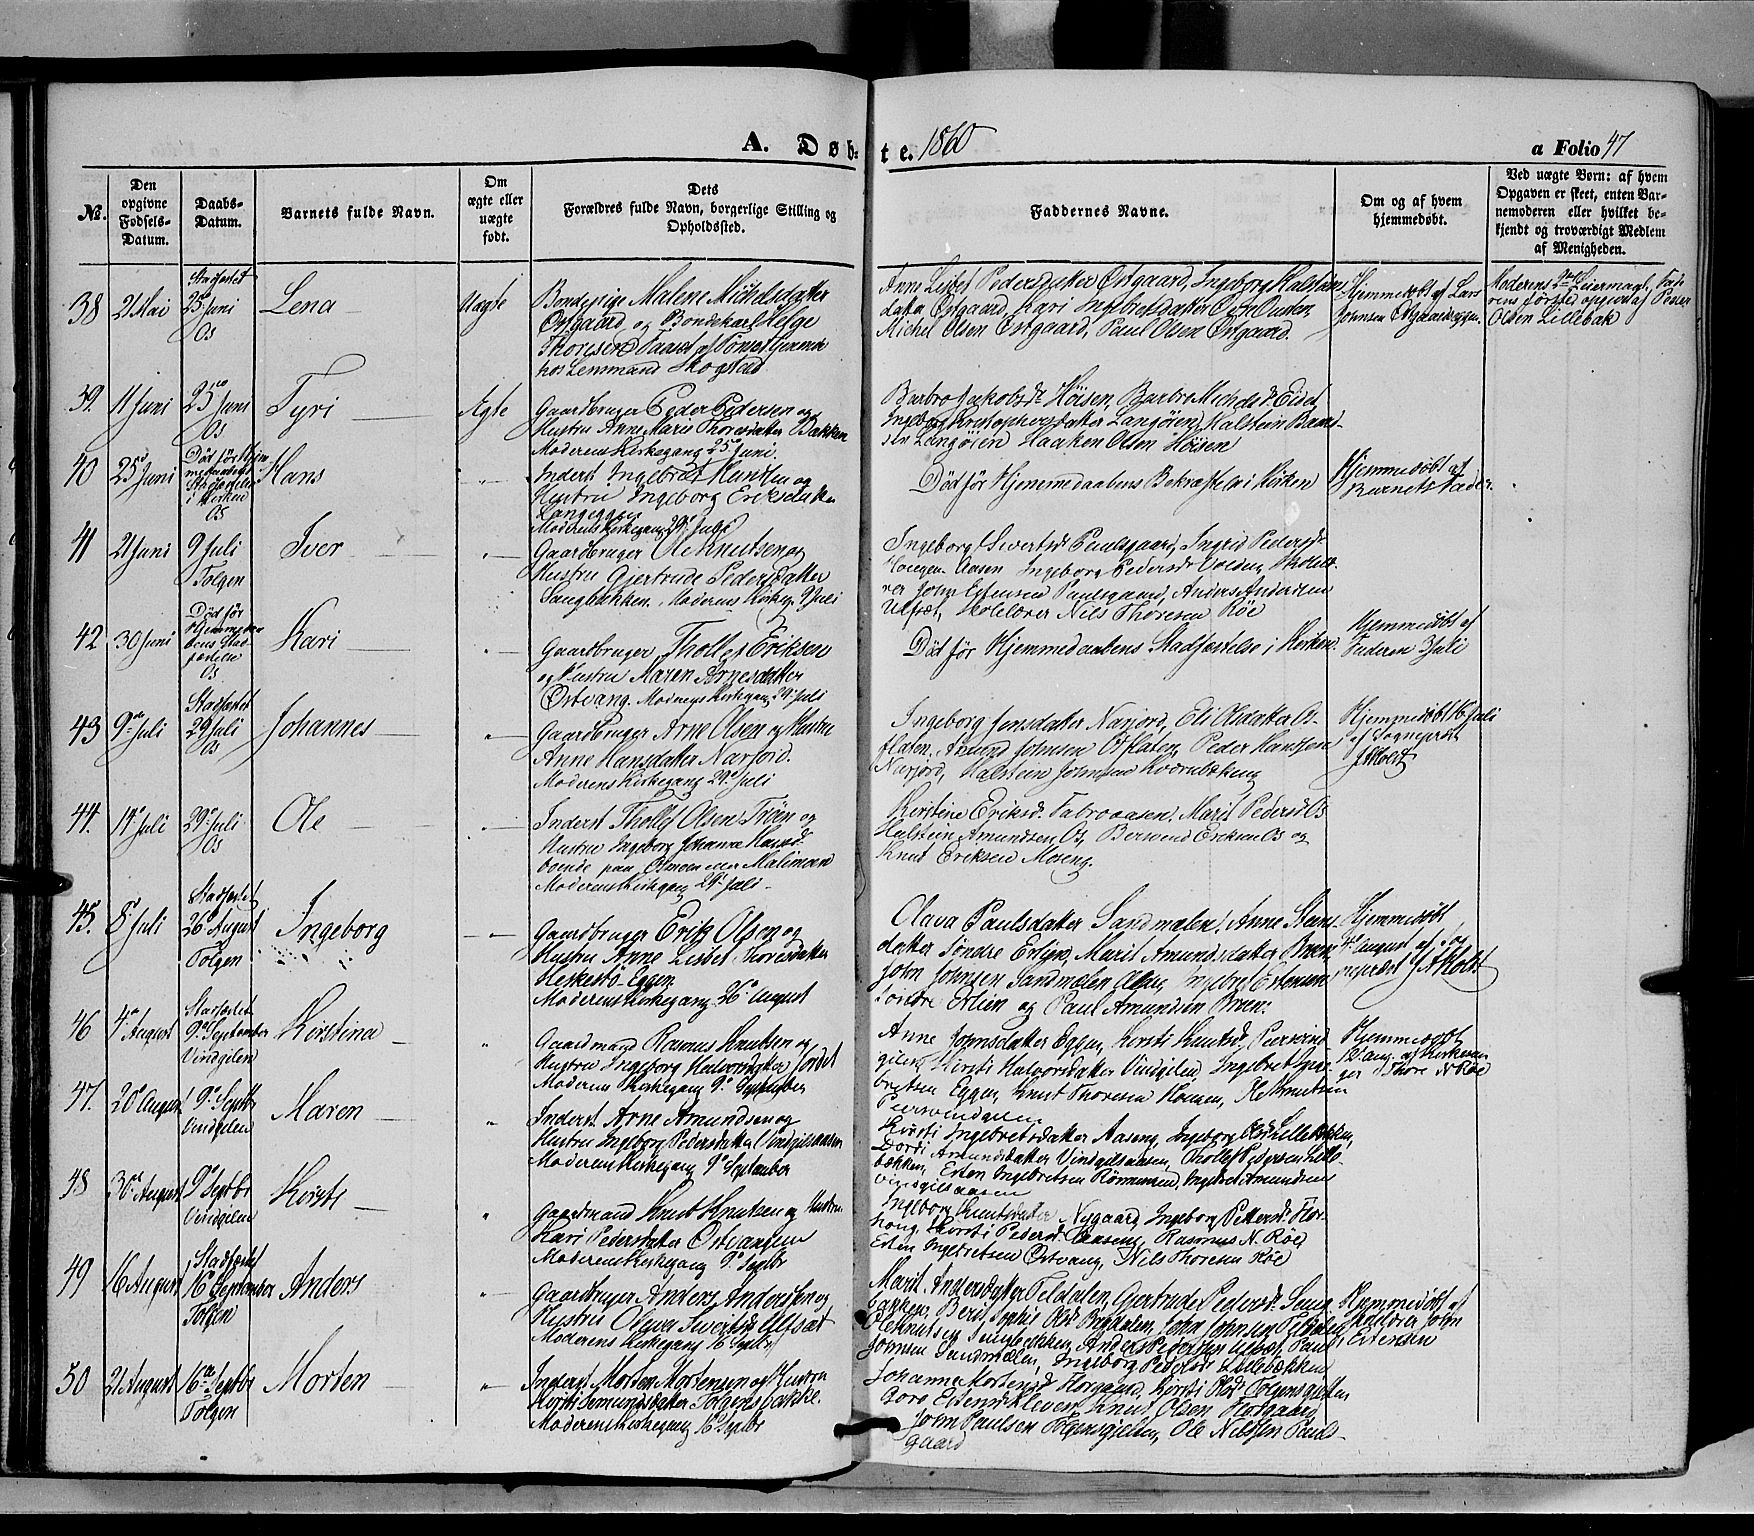 A. Døb-
te. 1860
a Folio 47
No.
Den opgivne Fødsels-Datum.
Daabs-Datum.
Barnets fulde Navn.
Om ægte eller uægte født.
Dets
Forældres fulde Navn, borgerlige Stilling og
Opholdssted.
Faddernes Navne.
Om og af hvem
hjemmedøbt.
Ved uægte Børn: af hvem
Opgaven er skeet, enten Bar-
nemoderen eller hvilket be-
kjendt og troværdigt Medlem
af Menigheden.
38
2 Mai
Stadfæstet
25 Juni
Os
Lena
Uægte
Bondepige Malene Michelsdatter
Østgaard og Bondekarl Helge
Thoresen
hos Lensmand Skogstad
Anne Lisbet Pedersdatter Østgaard, Ingeborg Halstein
datter Østgaard, Kari Ingebretsdatter
Michel Olsen Østgaard, Paul Olsen Østgaard.
Hjemmedøbt af Lars
Johnsen
Moderens 2den Leiermaal, Fade-
rens første opgivet af Peder
Olsen Lillebæk
39.
11 Juni
25de Juni
Os
Tyri
Ægte
Gaardbruger Peder Pedersen og
Hustru Anne Marie Thoresdatter Bakken
Moderens Kirkegang 25de Juni.
Barbro Jakobsdt. Høisen, Barbro Michelsdt.
Ingeborg Kristophersdatter Langøien, Halstein
Langøien Haaken Olsen Høisen
40
25de Juni
Død før Hjem-
medaabens
Stadfæstelse
i Kirken
Os
Hans
"
Inderst Ingebret Knudsen og
Hustru Ingeborg Eriksdatter
Langeggen
Moderens Kirkegang 29de Juli
Død før Hjemmedaabens Bekræftelse i Kirken
Hjemmedøbt af
Barnets Fader.
41
21 Juni
9 Juli
Tolgen
Iver
"
Gaardbruger Ole Knutsen og
Hustru Gjertrude Pedersdatter
Saugbakken. Moderens Kirkeg. 9 Juli
Ingeborg Sivertsdt. Paulsgaard, Ingrid Pedersdt.
Aasen Ingeborg Pedersdt. Volden, Skolelæ-
rer John Estensen Paulsgaard, Anders Andersen
Ulfsæt, Skolelærer Nils Thoresen Røe
42
30 Juni
Død før
Hjemmedaa-
bens Stad-
fæstelse
Os
Kari
"
Gaardbruger Thollef Eriksen
og Hustru Maren Arnesdatter
Østvang. Moderens Kirkegang 29 Juli
Død før Hjemmedaabens Stadfæstelse i Kirken.
Hjemmedøbt af
Faderen 3 Juli
43
9de Juli
Stadfæstet
29 Juli
Os
Johannes
"
Gaardbruger Arne Olsen og Hustru
Anne Hansdatter Narjord.
Moderens Kirkegang 29de Juli
Ingeborg Jonsdatter Narjord, Eli Olsdatter Os-
flaten, Amund Johnsen Osflaten, Peder Hansen
Narjord, Halstein Johnsen Kværnbakken
Hjemmedøbt 16 Juli
af Sogneprest
J. A. Holst
44.
14de Juli
29de Juli
Os
Ole
"
Inderst Thollef Olsen Trøen og
Hustru Ingeborg Johanna Hansd.
boende paa Osmoen eller Malmoen
Moderens Kirkegang 29de Juli
Kirstine Eriksd. Fabroaasen, Marit Pedersd. Os
Halstein Amundsen Os, Berwend Eriksen Os og
Knut Eriksen Moseng.
45.
8de Juli
Stadfæstet
26de August
Tolgen
Ingeborg
"
Gaardbruger Erik Olsen og
Hustru Anne Lisbet Thoresdatter
Eggen
Moderens Kirkegang 26de August
Olava Paulsdatter Sandmælen, Anne
datter Søndre Erlien, Marit Amundsdatter Bræen
John Johnsen Sandmælen Ingebret Estensen
Søndre Erlien og Paul Amundsen Bræen.
Hjemmedøbt
4de August af
J. A. Holst
46
4de August
Stadfæstet
9de September
Vingelen
Kirstina
"
Gaardmand Rasmus Knutsen og
Hustru Ingeborg Halvorsdatter
Moderens Kirkegang 9de September
Anne Johnsdatter Eggen, Kirsti Knutsd. Peersvind
gilen, Kirsti Halvorsdatter Vindgilen, Ingebret Inge-
bretsen Eggen, Knut Thoresen Hougen, Ole Knutsen
Peersvindgilen
Hjemmedøbt
12 Aug. af Kirkesan-
ger Thore N. Røe
47.
20de August
9de Septbr
Vindgilen
Maren
"
Inderst Arne Amundsen og
Hustru Ingeborg Pedersdatter Vindgilsaasen
Moderens Kirkegang 9de September
Kirsti Ingebretsdatter Aaseng, Ingeborg Olsd. Lillebækken,
Dordi Amundsdatter Vindgilsaasen, Thollef Pedersen Lille-
bækken, Esten Ingebretsen Ingebret Amundsen
Vindgilsaasen
48
30de August
9 Septbr
Vindgilen
Kirsti
"
Gaardmand Knut Knutsen og Hustru
Kari Pedersdatter Østvangen
Moderens Kirkegang 9de Septbr
Ingeborg Knutsdatter Nygaard, Ingeborg Pettersd. Flor-
houg, Kirsti Pedersd. Aaseng, Rasmus N. Røe,
Esten Ingebretsen Østvang, Nils Thoresen Røe
49
16 August
Stadfæstet
16de September
Tolgen
Anders
"
Gaardbruger Anders Anderssen og
Hustru Olava Sivertsd. Ulfsæt
Moderens Kirkegang 16 Septbr
Marit Andersdatter Feldalen, Gjertrude Pedersd. Saug-
bakken, Berit Sophie Olsd. John Johnsen Feldalen
Ole Knutsen Saugbakken, Anders Pedersen Ulfsæt, Paul
Johnsen Sandmælen, Ingeborg Pedersd. Lillebækken
Hjemmedøbt af
Skolelærer John
Estensen
50
21 August
16de Septbr
Tolgen
Morten
"
Inderst Morten Mortensen og Hustru
Kirsti Simunsdatter Tolgensbakke.
Moderens Kirkegang 16 Septbr
Johanna Mortensd. Horgaard, Kirsti Olsd. Tolgensgjelten
Goro Estensd. Kleven, Knut Olsen Horgaard,
John Paulsen Tolgensgjelten, Ole Nilssen Pauls-
gaard